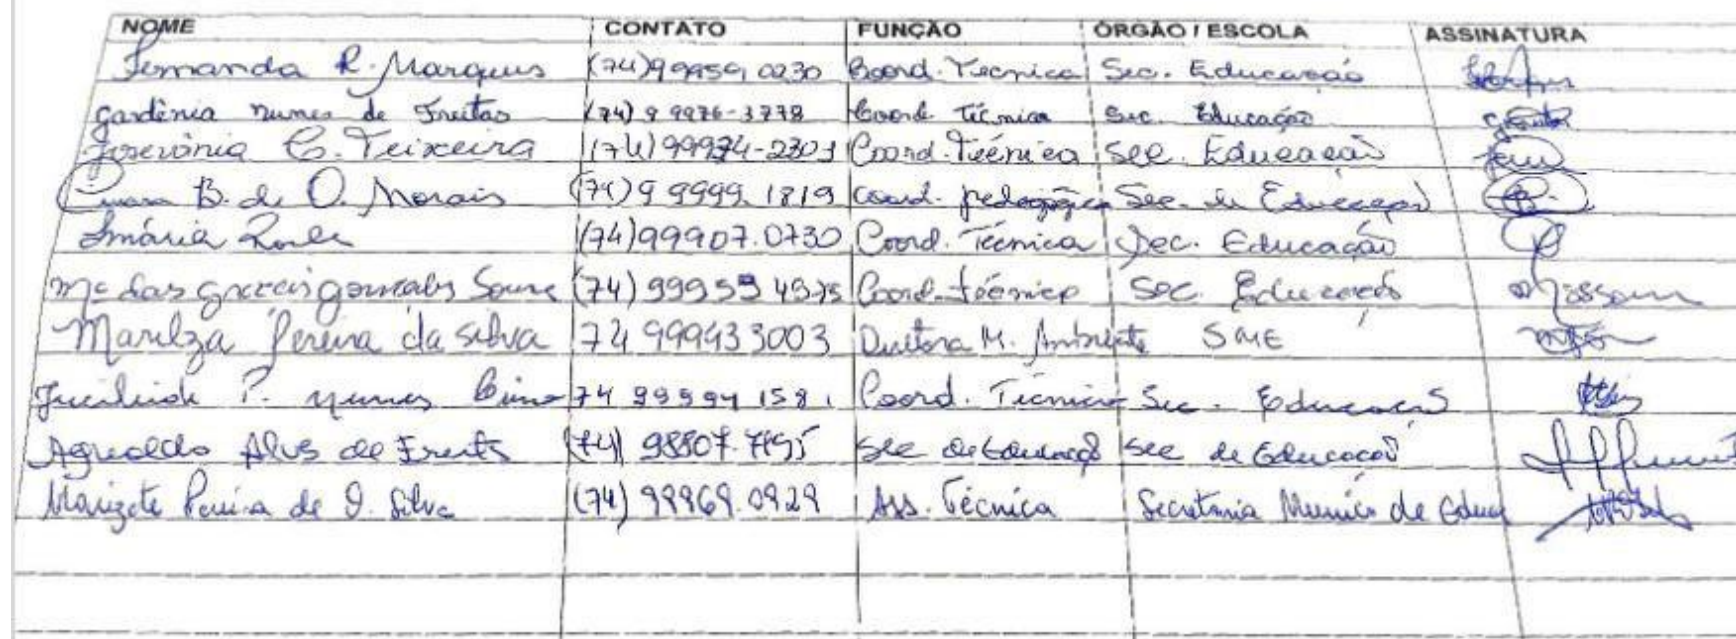 NOME CONTATO FUNÇÃO ÓRGÃO / ESCOLA ASSINATURA
Fernanda R. Marques (74)99959 0230 Coord. Tecnica Sec. Educação
Gardênia Nunes de Freitas (74) 9 9976-3778 Coord. Técnica Sec. Educação
Josevânia C. Teixeira (74) 99974-2303 Coord. Técnica Sec. Educação
B. de O. Morais (74) 9 9999.1819 Coord. pedagógica Sec. de Educação
Imária (74)99907.0730 Coord. Técnica Sec. Educação
Mª das Graças Gonçalves (74) 99959 4975 Coord. técnica Sec. Educação
Marilza Pereira da Silva 74 999433003 Diretora M. Ambiente SME
P. Nunes 74 99994 1581 Coord. Técnica Sec. Educação
Agnaldo Alves de Freitas (74) 98807.7195 Sec de Educação Sec de Educação
Marizete Pereira de O. Silva (74) 99969.0929 Ass. Técnica Secretaria Munic de Educ